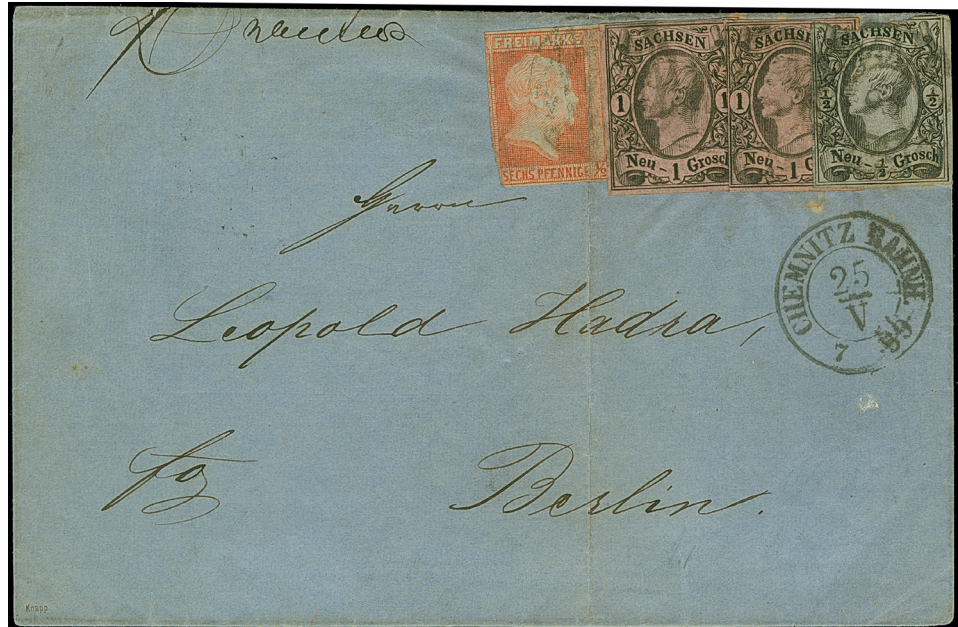 FREIMARKE
SECHS PFENNIGE ½
SACHSEN
1 1
Neu - 1 Grosch
SACHSE
1
Neu - 1 G
SACHSEN
½ ½
Neu - ½ Grosch
Herrn
CHEMNITZ BAHNH.
25
V
7
Leopold Hadra,
fg
Berlin.
Knapp